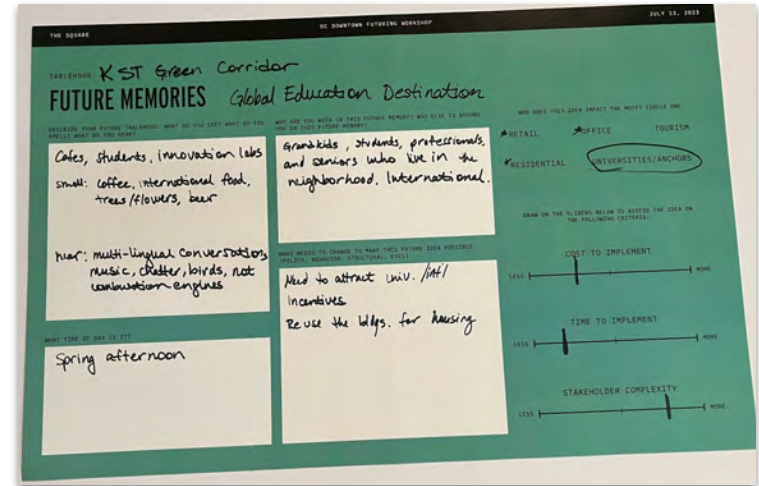 THE SQUARE
DC DOWNTOWN FUTURING WORKSHOP
JULY 13, 2023
TABLEHOOD: K ST Green Corridor
FUTURE MEMORIES Global Education Destination
DESCRIBE YOUR FUTURE TABLEHOOD: WHAT DO YOU SEE? WHAT DO YOU
SMELL? WHAT DO YOU HEAR?
Cafes, students, innovation labs
smell: coffee, international food,
trees/flowers, beer
hear: multi-lingual conversations
music, chatter, birds, not
combustion engines
WHAT TIME OF DAY IS IT?
Spring afternoon
WHO ARE YOU WITH IN THIS FUTURE MEMORY? WHO ELSE IS AROUND
YOU IN THIS FUTURE MEMORY?
Grandkids, students, professionals,
and seniors who live in the
neighborhood, International.
WHAT NEEDS TO CHANGE TO MAKE THIS FUTURE IDEA POSSIBLE
(POLICY, BEHAVIOR, STRUCTURAL, ETC)?
Need to attract univ. /
Incentives
Re use the bldgs. for housing
WHO DOES THIS IDEA IMPACT THE MOST? CIRCLE ONE
RETAIL OFFICE TOURISM
RESIDENTIAL UNIVERSITIES/ANCHORS
DRAW ON THE SLIDERS BELOW TO ASSESS THE IDEA ON
THE FOLLOWING CRITERIA:
COST TO IMPLEMENT
LESS MORE
TIME TO IMPLEMENT
LESS MORE
STAKEHOLDER COMPLEXITY
LESS MORE